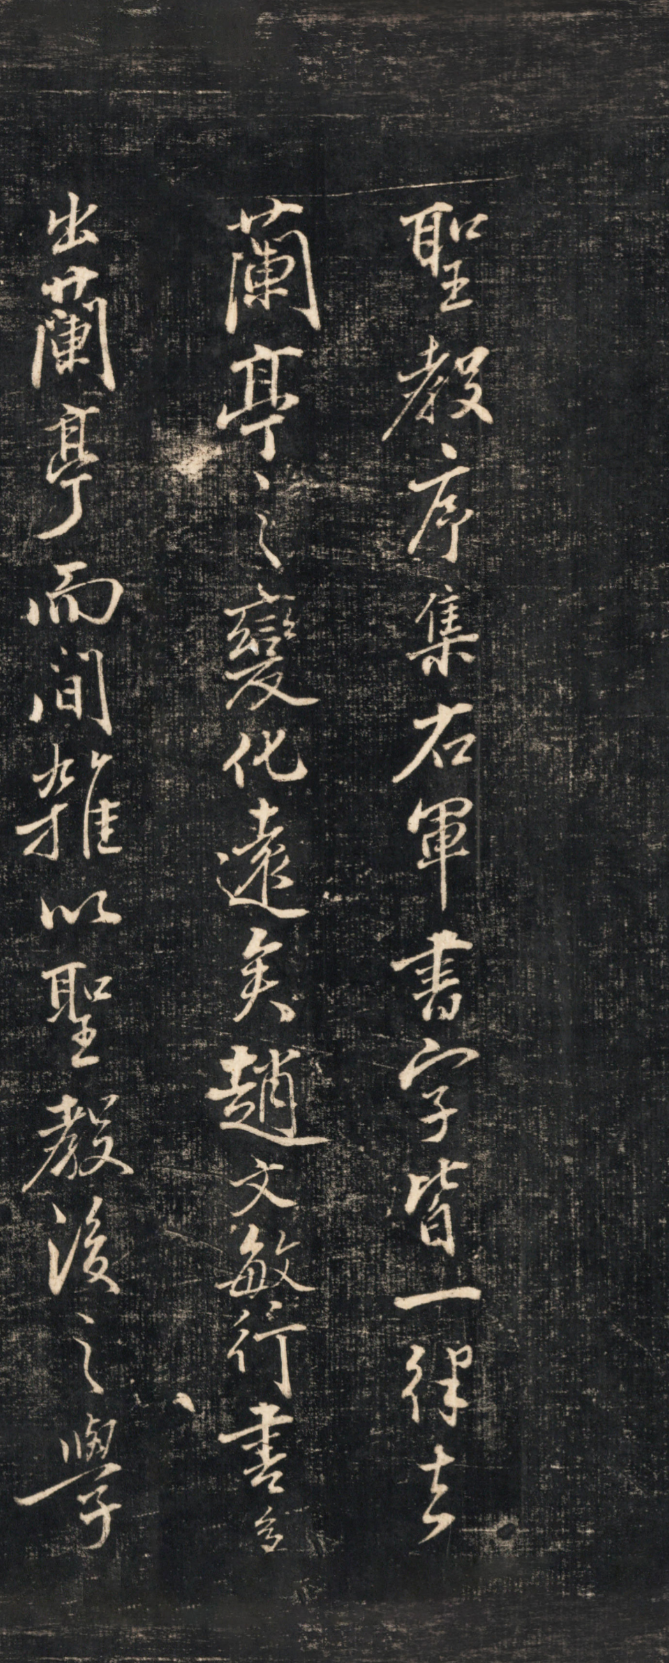 聖教序集右軍書字皆一律去
蘭亭之變化遠矣趙文敏行書多
出蘭亭而間雜以聖教後之學